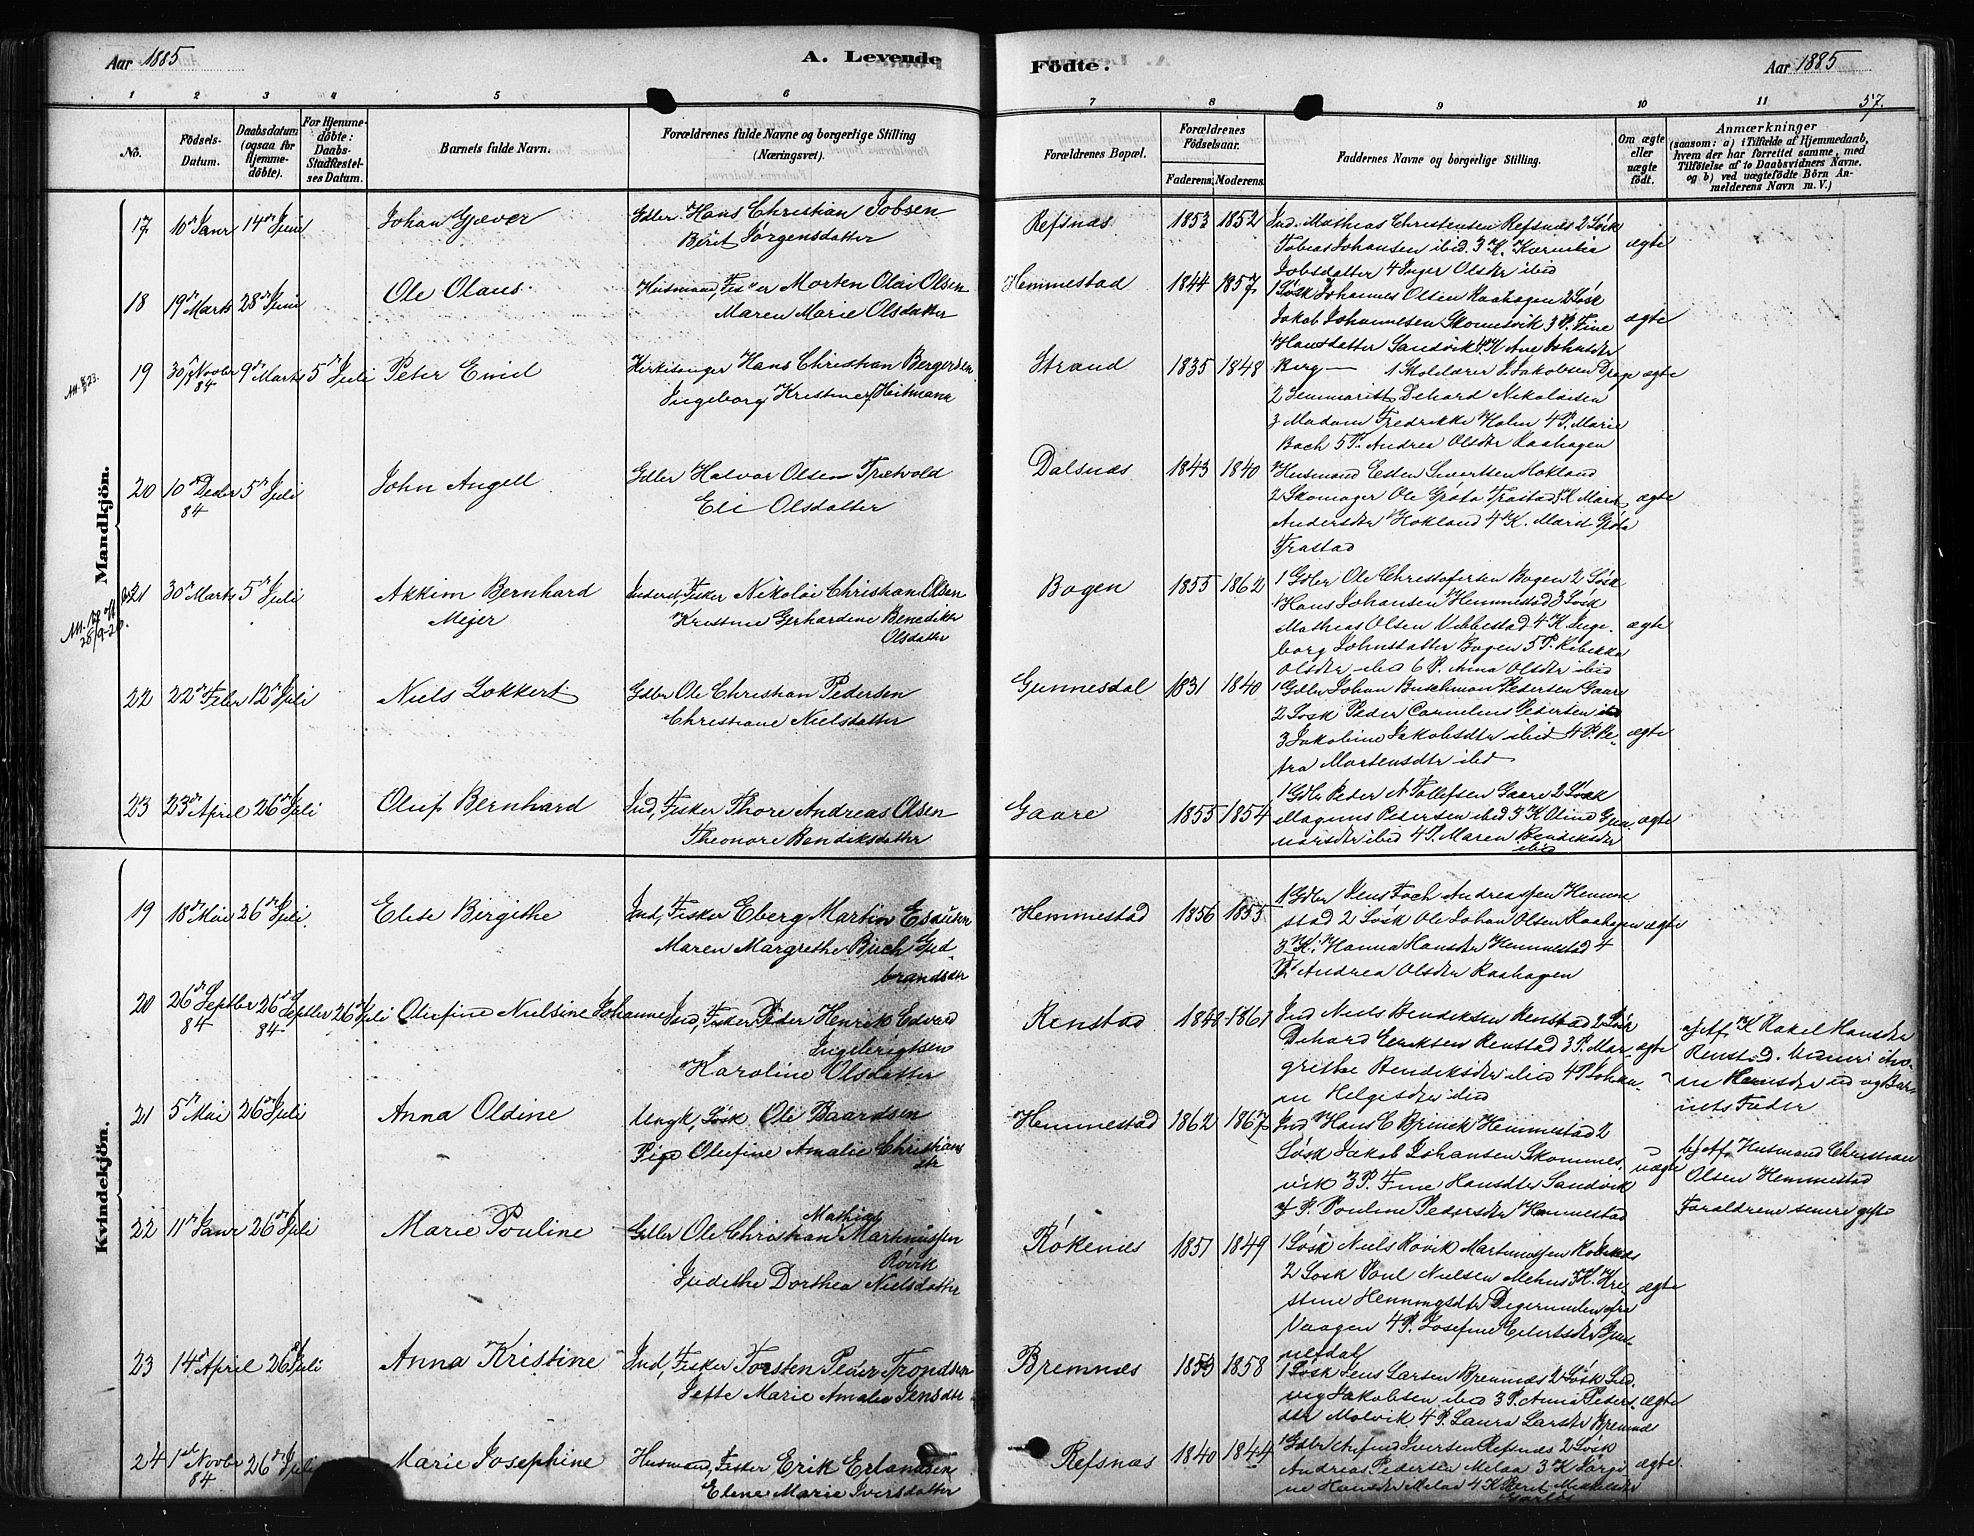 Aar 1885
A. Levende
Födte.
Aar 1885
57.
1 2 3 4 5 6 7 8 9 10 11
No.
Födsels-Datum.
Daabsdatum (ogsaa for hjemme-döbte).
For Hjemme-döbte: Daabs-Stadfæstel-ses Datum.
Barnets fulde Navn.
Forældrenes fulde Navne og borgerlige Stilling (Næringsvei).
Forældrenes Bopæl.
Forældrenes Födselsaar.
Faderens. Moderens.
Faddernes Navne og borgerlige Stilling.
Om ægte eller uægte födt.
Anmærkninger
(saasom: a) i Tilfælde af Hjemmedaab, hvem der har forrettet samme, med Tilföielse af to Daabsvidners Navne. og b) ved uægtefödte Börn An-melderens Navn m. V.)
Mandkjön.
17 14de Juni Johan Gjæver Gdbr. Hans Christian Jobsen
Berit Jørgensdatter
Refsnæs 1853 1852 Ind. Mathias Christensen Refsnæs 2 Løsk
Tobias Johansen ibid. 3 K. Kornelia
Jobsdatter 4 Inger Olsdtr ibid
ægte
18 19de Marts 28de Juni Ole Olaus Husmand, Morten Olai Olsen
Maren Marie Olsdatter
Hemmestad 1844 1857 1 Løsk Johannes Olsen Raahagen 2 Løsk
Jakob Johannesen Skomesvik 3 P. Fine
Hansdatter Sandvik 4 K Ane
ægte
19 30 Novbr 84 9de Marts 5te Juli Peter Emil Kirkesanger Hans Christian Bergersen
Ingeborg Kristine Heitmann
Strand 1835 1848 Berg — 1 Skolelærer J. Jakobsen ægte
2 Seminarist Dehard Nikolaisen
3 Madam Fredrikke Holm 4 P. Marie
Bach 5 P. Andrea Olsdtr Raahagen
20 10de Decbr 84 5te Juli John Angell Gdbr Halvor Olsen Trætvold
Eli Olsdatter
Dalsnæs 1843 1840 Husmand Sivertsen Hokland
2 Skomager Ole Trastad 3 K Marit
Andersdtr Hokland 4 K. Marit
Trastad
ægte
21 30de Marts 5te Juli Akkim Bernhard
Mejer
Inderst, Fisker Nikolai Christian Olsen
Kristine Gerhardine Benedikte
Olsdatter
Bogen 1855 1862 1 Gdbr Ole Christofersen Bogen 2 Løsk
Hans Johansen Hemmestad 3 Løsk
Mathias Olsen Vebbestad 4 K Inge-
borg Johnsdatter Bogen 5 P. Rebekka
Olsdtr ibid 6 P. Anna Olsdtr ibid
ægte
22 22de Febr 12te Juli Niels Lokkert Gdbr Ole Christian Pedersen
Christiane Nielsdatter
Gunnesdal 1831 1840 1 Gdbr Johan Buschman Pedersen Gaare
2 Løsk Peder Cornelius Pedersen ibid
3 Jakobine Jakobsdtr ibid 4 P. Pe-
tra Mortensdtr ibid
ægte
23 23de April 26de Juli Oluf Bernhard Ind, Fisker Thore Andreas Olsen
Theonore Bendiksdatter
Gaare 1855 1854 1 Gdbr Peder A Tollefsen Gaare 2 Løsk
Magnus Pedersen ibid 3 K Oline
ibid 4 P. Maren Bendiksdtr
ibid
ægte
Kvindekjön.
19 18de Mai 26de Juli Elise Birgithe Ind, Fisker Eberg Martin Esaiesen
Maren Margrethe Buch Gud-
brandsdtr
Hemmestad 1856 1855 1 Gdbr Jens Andreassen Hemme-
stad 2 Løsk Ole Johan Olsen Raahagen ægte
3 K. Hanna Hansdtr Hemmestad 4
P. Andrea Olsdtr Raahagen
20 26de Septbr 84 26de Septbr 84 26de Juli Olufine Nielsine Johanne Ind, Fisker Peder Henrik Edvard
Ingebrigtsen
Karoline Olsdatter
Renstad 1840 1861 Ind Niels Bendiksen Renstad 2 Løsk
Dehard Eriksen Renstad 3 P. Mar-
grethe Bendiksdtr ibid 4 P Johan-
ne Helgesdtr ibid
ægte
a) Af K Rakel Hansdtr
Renstad.
ne Hansdtr ibid og Bar-
nets Fader
21 5te Mai 26de Juli Anna Oldine Ungk, Løsk Ole Baardsen
Pige Olufine Amalie Christians
dtr
Hemmestad 1862 1867 Ind Hans E Brinck Hemmestad 2
Løsk Jakob Johansen Skommes-
vik 3 P. Fine Hansdtr Sandvik
4 P. Pouline Pedersdtr Hemmestad
uægte
b) Af Husmand Christian
Olsen Hemmestad
Forældrene senere gift
22 11te Janr 26de Juli Marie Pouline Gdbr Ole Christian Mathias Martinussen
Røvik
Judithe Dorthea Nielsdatter
Røkenes 1851 1849 1 Løsk Niels Rovik Martinussen Røkenæs
2 Løsk Poul Nielsen Mehus 3 K. Kre-
stine Henningsdtr Digermulen fra
Vaagen 4 P. Josefine Eilertsdtr Gun-
nesdal
ægte
23 14de April 26de Juli Anna Kristine Ind, Fisker Torsten Peder Trondsen
Jefte Marie Amalie Jensdtr
Bremnæs 1853 1858 1 Løsk Jens Larsen Bremnæs 2 Løsk Lud-
vig Jakobsen ibid 3 P. Anna Peders-
dtr Molvik 4 P. Laura Larsdtr Bremnæs
ægte
24 1ste Novbr 84 26de Juli Marie Josephine Husmand, Fisker Erik Erlandsen
Elene Marie Iversdatter
Refsnæs 1840 1844 1 Gdbr Iversen Refsnæs 2 Løsk
Andreas Pedersen Melaa 3 K
ne Hansdtr Melaa 4 K Berit Mikkelsdtr
ægte.